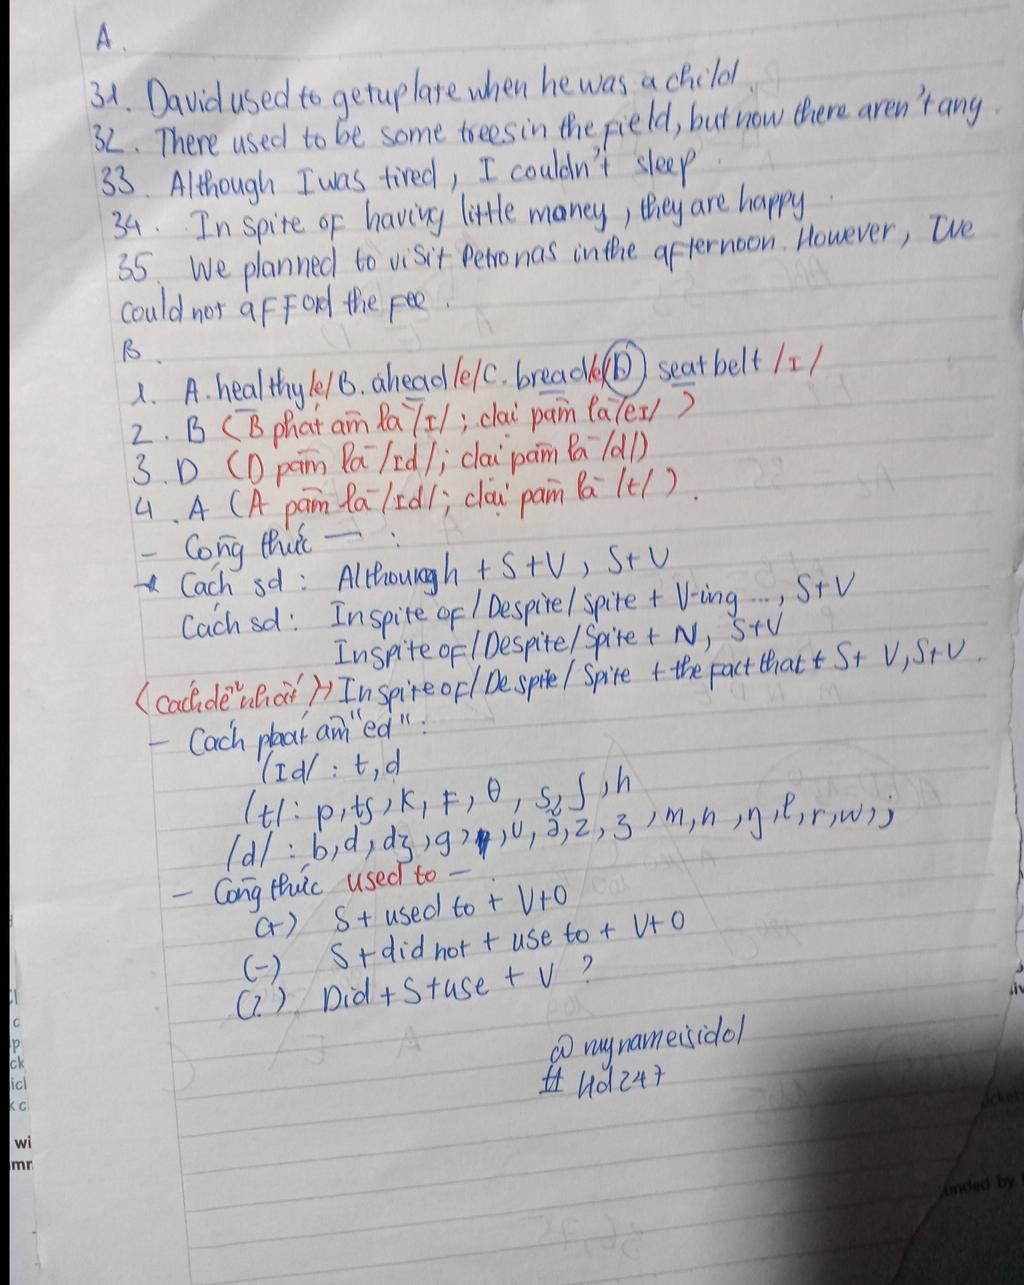 A.
31. David used to get up late when he was a child.
32. There used to be some trees in the field, but now there aren't any.
33. Although I was tired, I couldn't sleep.
34. In spite of having little money, they are happy.
35. We planned to visit Petronas in the afternoon. However, we
could not afford the fee.
B.
1. A. healthy /e/ B. ahead /e/ C. bread /e/ D seatbelt /I/
2. B (B phát âm là /I/; clại pâm là /eI/)
3. D (D pâm là /Id/; clại pâm là /d/)
4. A (A pâm là /Id/; clại pâm là /t/).
- Công thức - :
Cách sd: Although + S+V, S+V
Cách sd: In spite of / Despite / Spite + V-ing ..., S+V
In spite of / Despite / Spite + N, S+V
(cách dễ nhất) In spite of / Despite / Spite + the fact that + S+ V, S+V.
- Cách phát âm "ed":
/Id/ : t, d
/t/: p, tʃ, k, f, θ, s, ʃ, h
/d/ : b, d, dʒ, g, v, ð, z, ʒ, m, n, ŋ, l, r, w, j
- Công thức used to - :
(+) S + used to + V+O
(-) S + did not + use to + V+O
(?) Did + S + use + V ?
@ mynameisidol
# Hd247
c
p
ck
icl
wi
mr
unded by